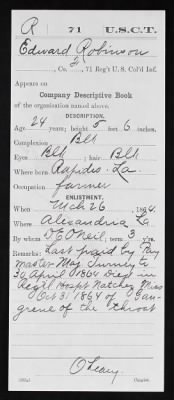 R 71 U.S.C.T.
Edward Robinson
, Co. , 71 Reg't U. S. Col'd Inf.
Appears on
Company Descriptive Book
of the organization named above.
DESCRIPTION.
Age 24 years; height 5 feet 6 inches.
Complexion Blk
Eyes Blk ; hair Blk
Where born Rapides, La.
Occupation Farmer
ENLISTMENT.
When Mch 26 , 1864.
Where Alexandria La
By whom D E O'Neil ; term 3 y'rs.
Remarks: Last paid by Pay
master Maj to
30 April 1864 Died in
Regtl Hospt Natchez Miss
Oct 31. 1864 of Gan-
grene of the throat
O'Leary.
Copyist.